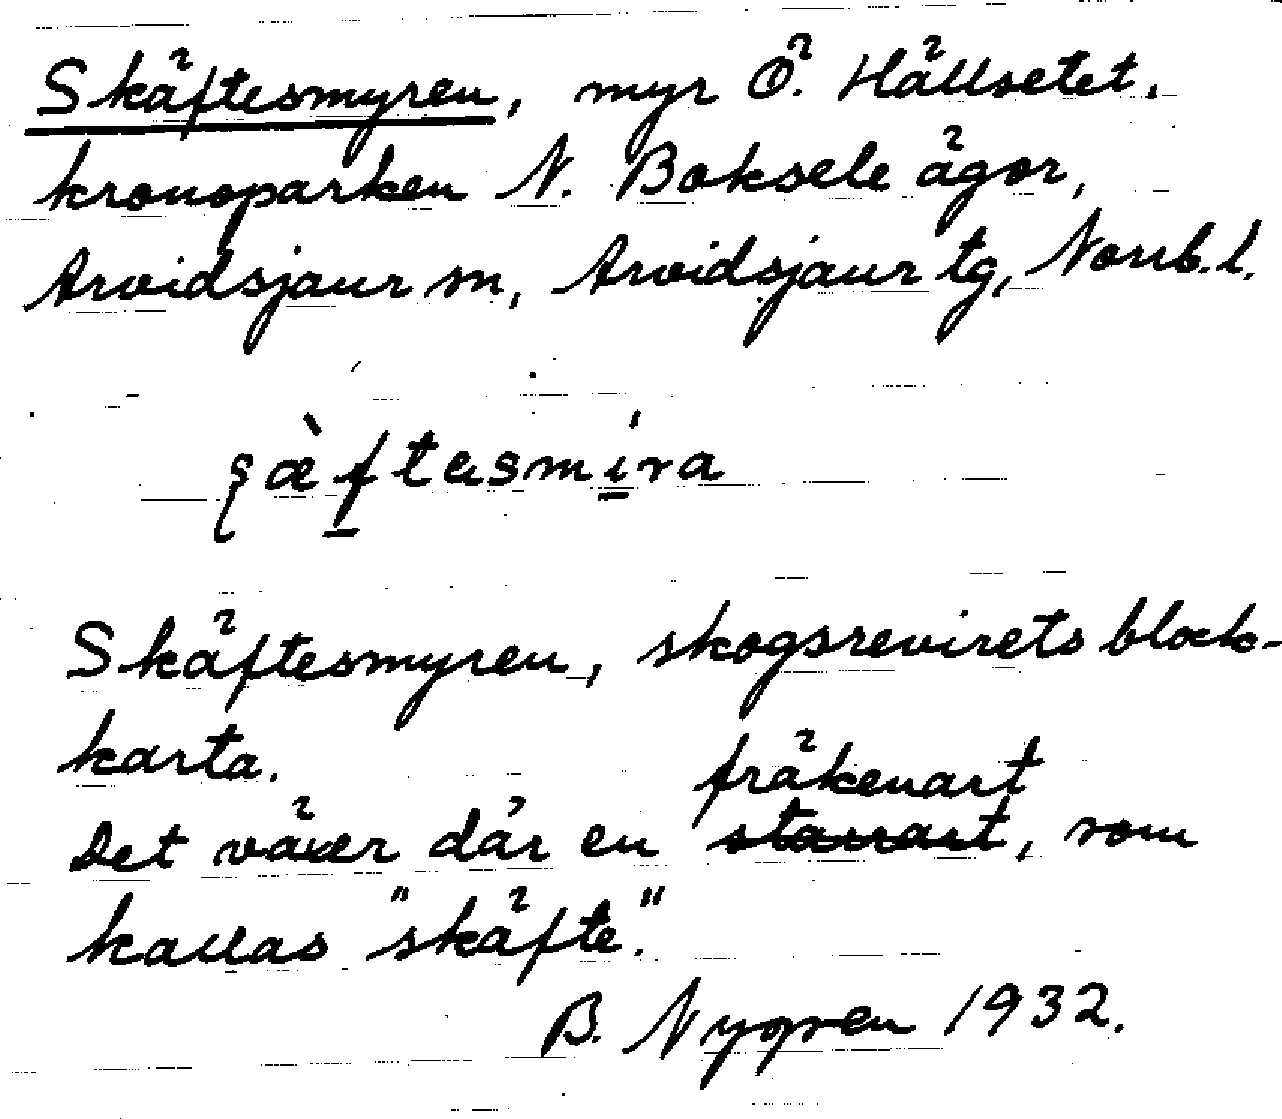 Skäftesmyren, myr Ö. Hällsetet,
kronoparken N. Boksele ägor,
Arvidsjaur sn, Arvidsjaur tg, Norrb. l.
şæ̀ftɐsmira
Skäftesmyren, skogsrevirets block-
karta.
fräkenart
Det växer där en starrart, som
kallas "skäfte."
B. Nygren 1932.